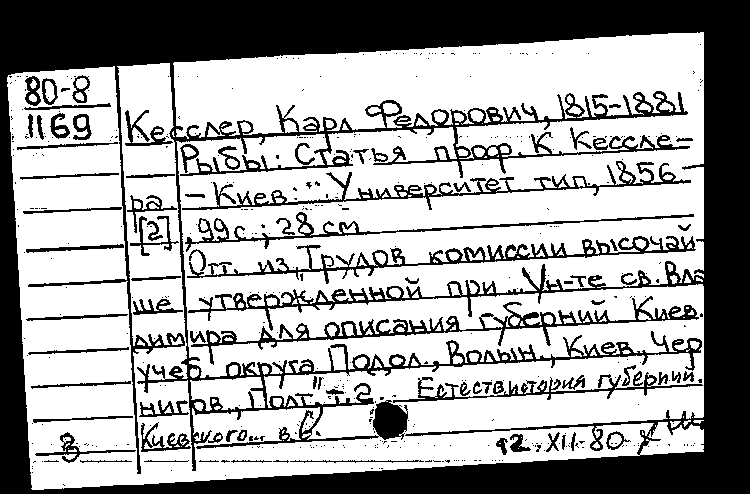 80-8
1169
Кесслер, Карл Федорович, 1815-1881
Рыбы: Статья проф. К. Кессле-
ра. - Киев: ... Университет. тип., 1856. -
[2], 99 с.; 28 см.
Отт. из "Трудов комиссии высочай-
ше утвержденной при ... Ун-те св. Вла
димира для описания губерний Киев.
учеб. округа Подол., Волын., Киев., Чер
нигов., Полт.", т. 2. Естеств. история губерний.
Киевского...
З
12.XII-80